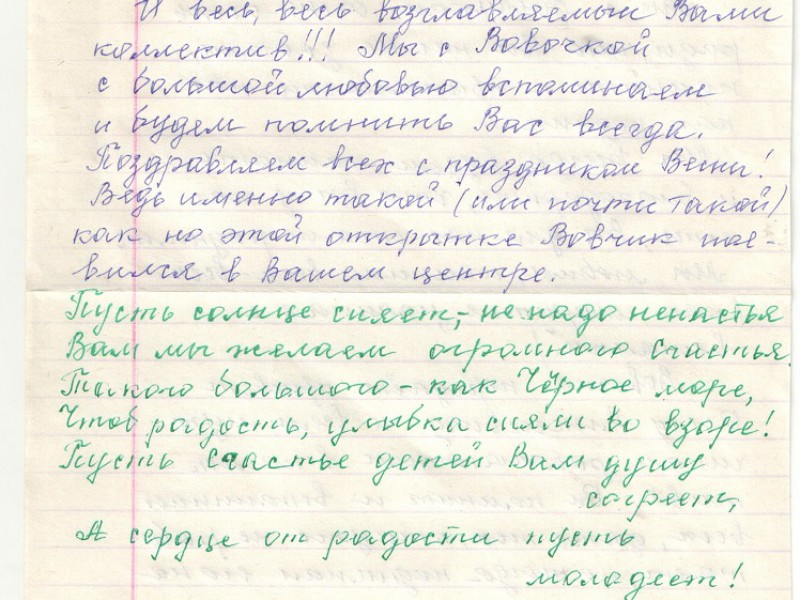 И весь, весь возглавляемый Вами
коллектив!!! Мы с Вовочкой
с большой любовью вспоминаем
и будем помнить Вас всегда.
Поздравляем всех с праздником Весны!
Ведь именно такой (или почти такой)
как на этой открытке Вовчик поя-
вился в Вашем центре.
Пусть солнце сияет,- не надо ненастья
Вам мы желаем огромного счастья.
Такого большого - как Чёрное море,
Чтоб радость, улыбка сияли во взоре!
Пусть счастье детей Вам душу
согреет,
А сердце от радости пусть
молодеет!